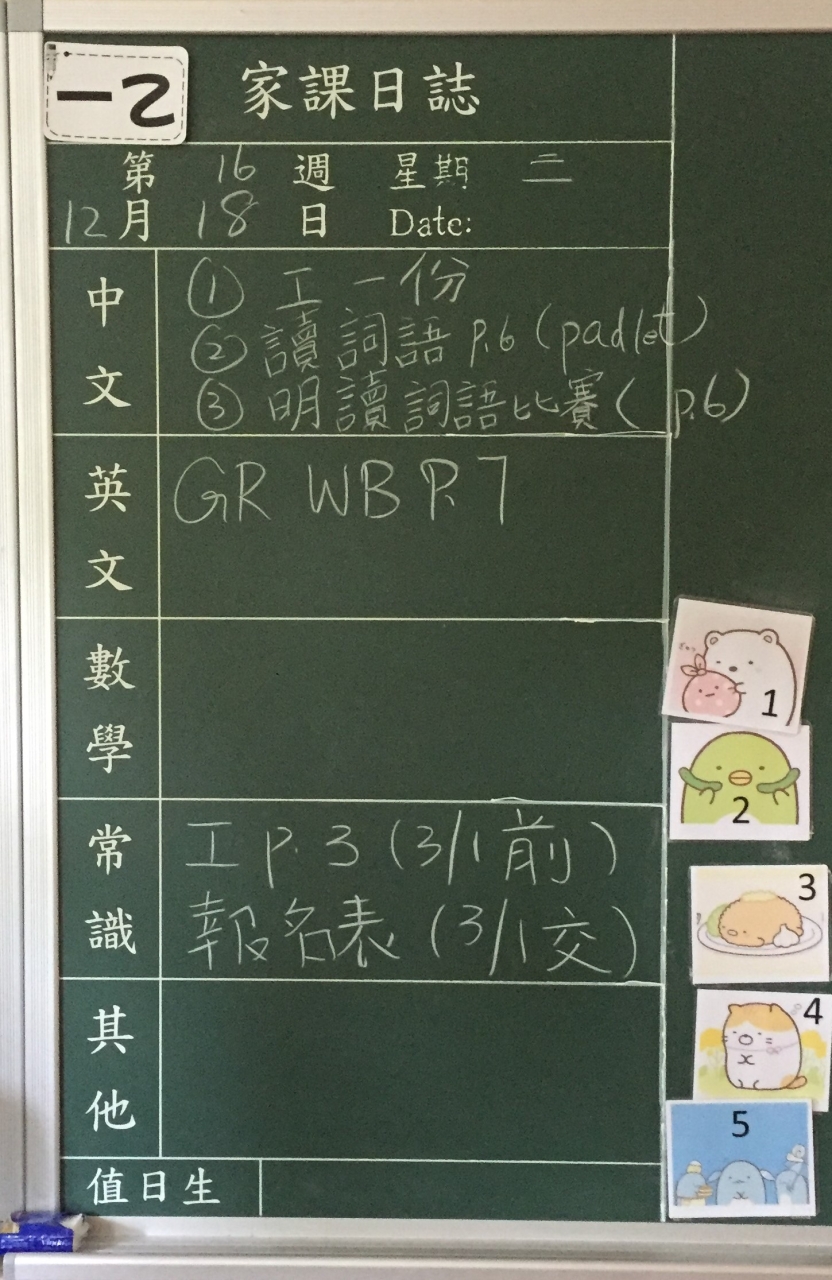 一乙
家課日誌
第 16 週 星期 二
12月 18 日 Date:
中文
① 工一份
② 讀詞語 p.6 (padlet)
③ 明讀詞語比賽( p.6)
英文
GR WB P.7
數學
常識
工 p.3 (3/1前)
報名表 (3/1交)
其他
值日生
1
2
3
4
5